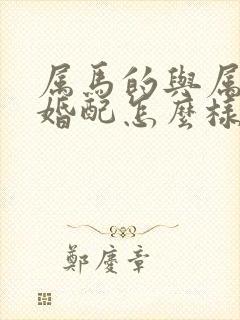 属馬的與属
婚配怎麼樣
鄭慶章